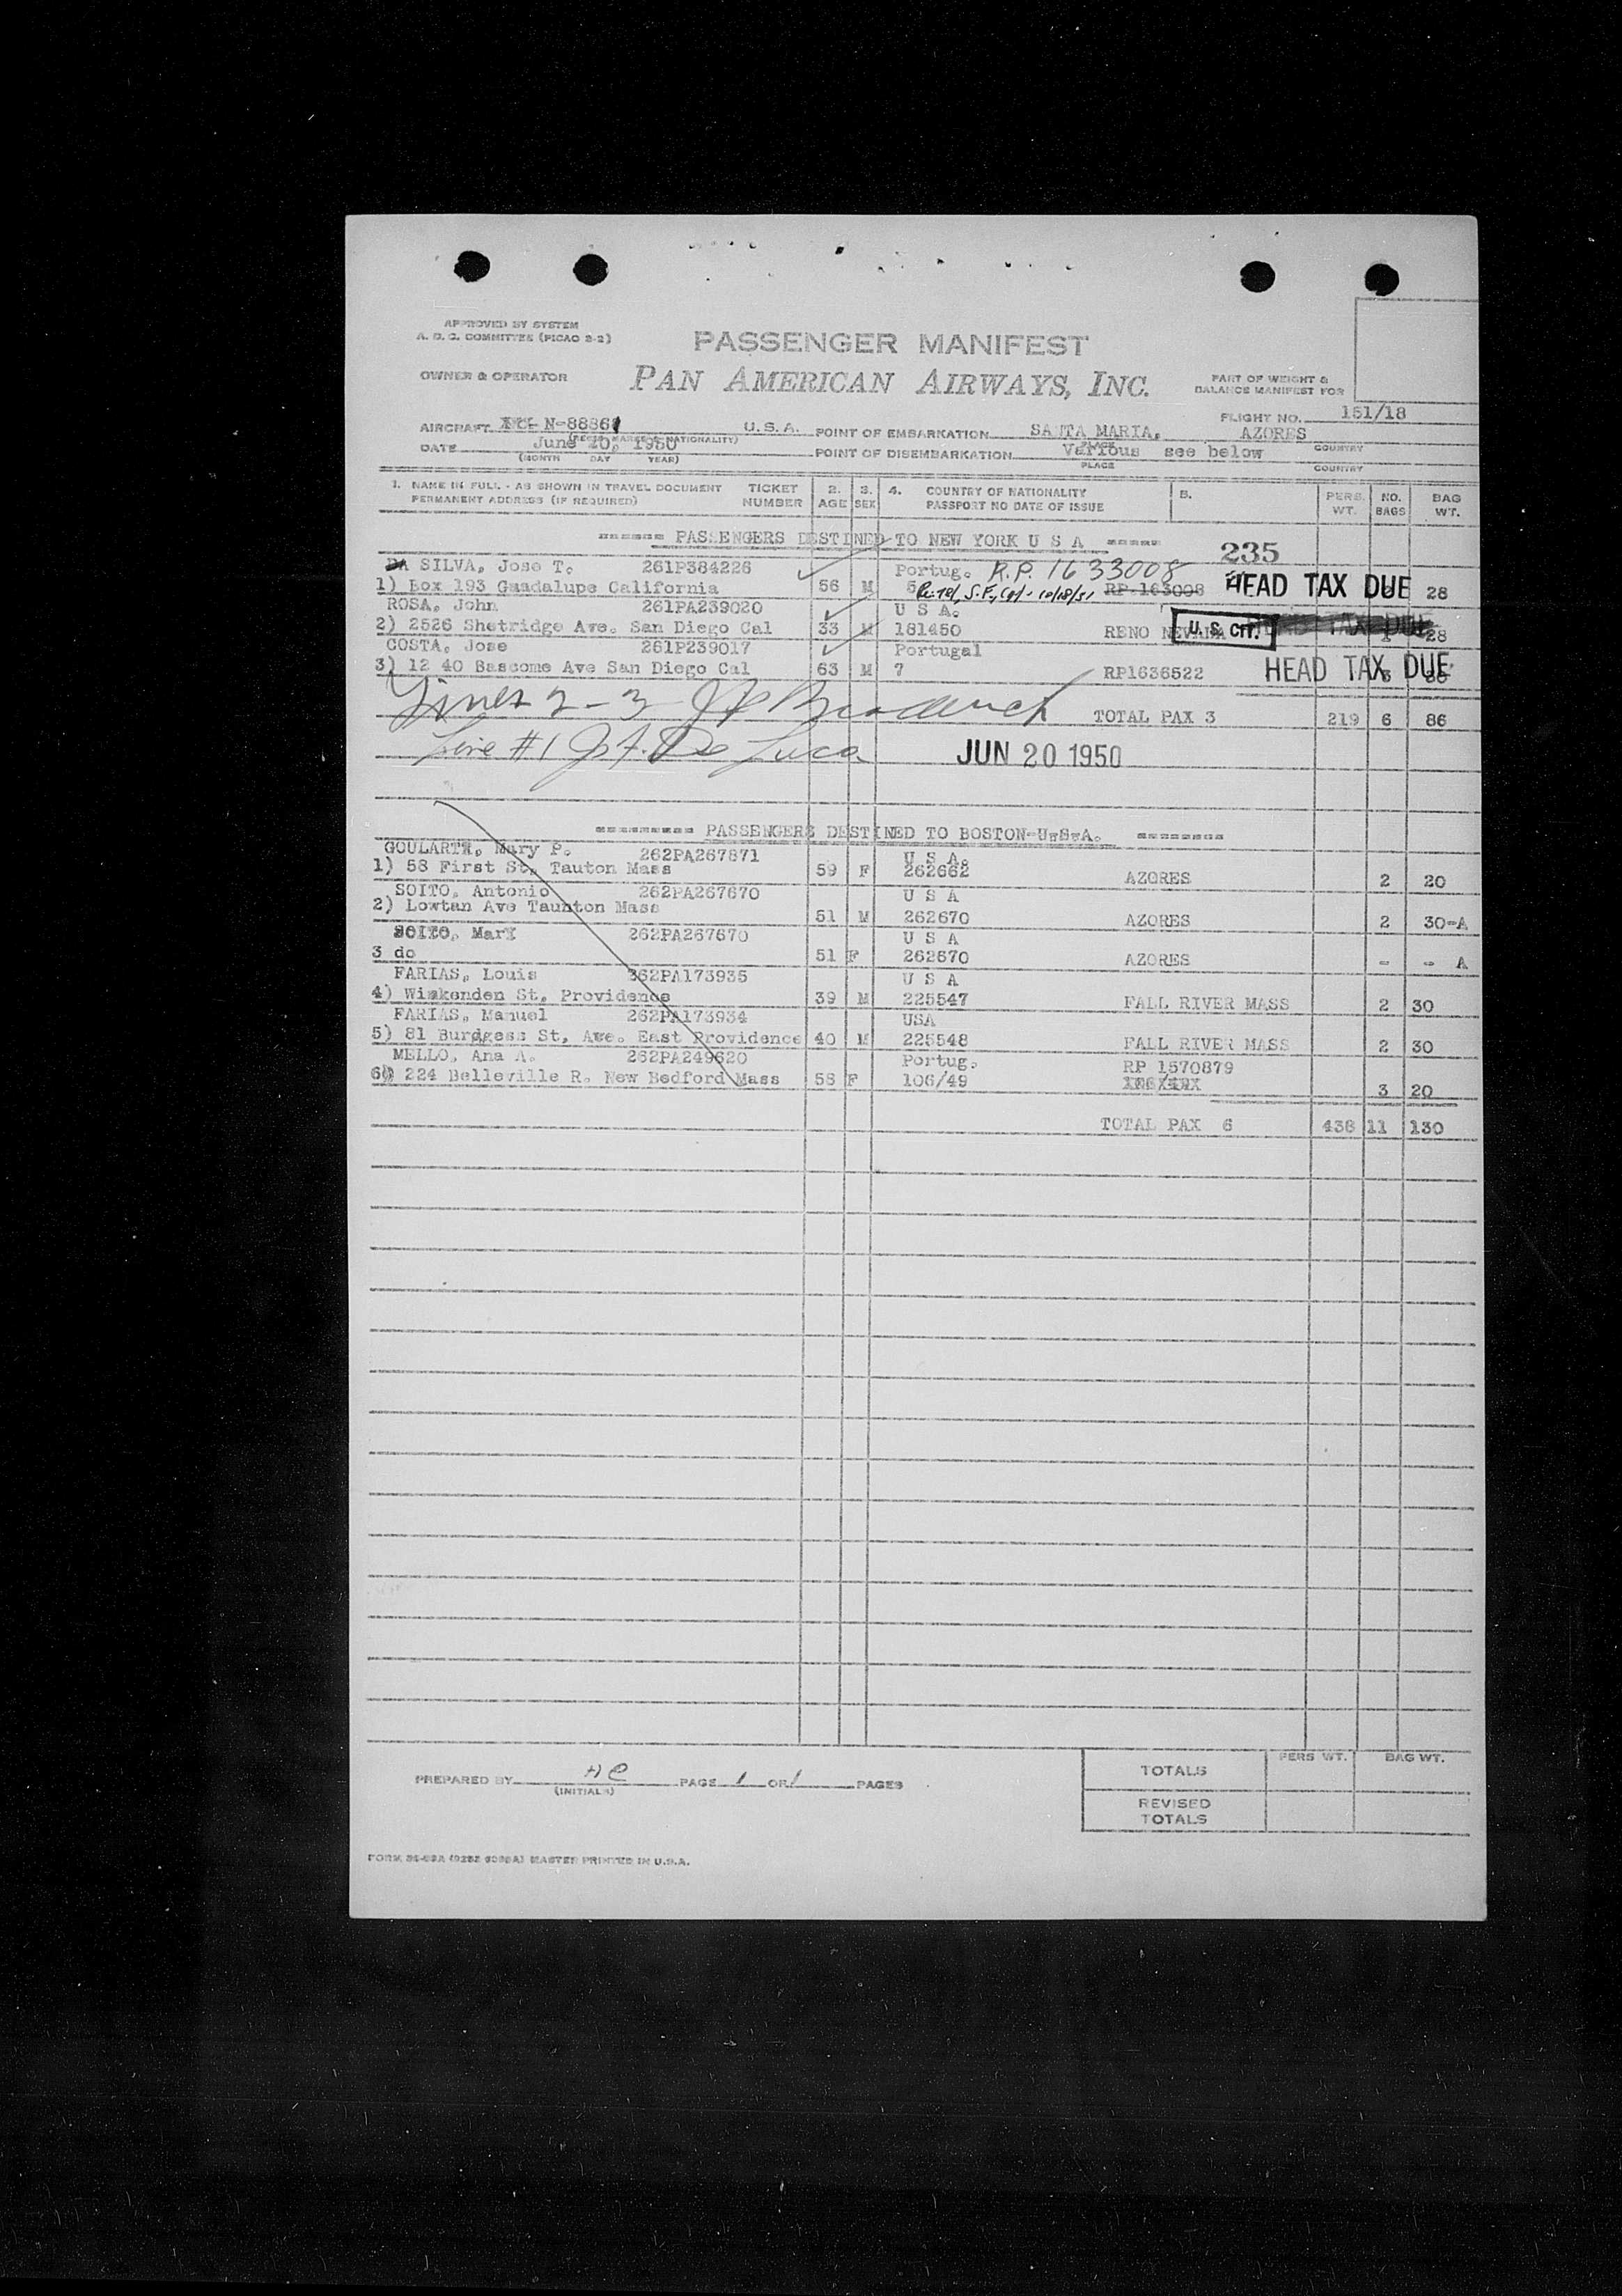 APPROVED BY SYSTEM
A. D. C. COMMITTEE (PICAO 2-2)
PASSENGER MANIFEST
OWNER & OPERATOR
PAN AMERICAN AIRWAYS, INC.
PART OF WEIGHT &
BALANCE MANIFEST FOR
FLIGHT NO. 151/18
AIRCRAFT N-88861 U.S.A. POINT OF EMBARKATION SANTA MARIA, AZORES
DATE June 20, 1950 POINT OF DISEMBARKATION Various see below
PLACE COUNTRY
(MONTH DAY YEAR)
PLACE COUNTRY
1. NAME IN FULL - AS SHOWN IN TRAVEL DOCUMENT TICKET 2. 3. 4. COUNTRY OF NATIONALITY 5. PERS. NO. BAG
PERMANENT ADDRESS (IF REQUIRED) NUMBER AGE SEX PASSPORT NO DATE OF ISSUE WT. BAGS WT.
====== PASSENGERS DESTINED TO NEW YORK U S A =====
235
DA SILVA, Jose T. 261P384226 Portug. R.P. 1633008
1) Box 193 Guadalupe California 56 M RP-163008 HEAD TAX DUE 28
ROSA, John 261PA239020 U S A.
2) 2526 Shetridge Ave. San Diego Cal 33 M 181450 RENO NEVADA U. S. CIT. HEAD TAX DUE 1 28
COSTA, Jose 261P239017 Portugal
3) 12 40 Bascome Ave San Diego Cal 63 M 7 RP1636522 HEAD TAX DUE
Lines 2-3
TOTAL PAX 3 219 6 86
Line #1 J. A. De Luca
JUN 20 1950
========= PASSENGERS DESTINED TO BOSTON-U.S.A. ========
GOULARTE, Mary P. 262PA267871 U S A.
1) 58 First St, Tauton Mass 59 F 262662 AZORES 2 20
SOITO, Antonio 262PA267670 U S A
2) Lowtan Ave Taunton Mass 51 M 262670 AZORES 2 30-A
SOITO, Mary 262PA267670 U S A
3 do 51 F 262670 AZORES - - A
FARIAS, Louis 262PA173935 U S A
4) Wickenden St, Providence 39 M 225547 FALL RIVER MASS 2 30
FARIAS, Manuel 262PA173934 USA
5) 81 Burdgess St, Ave. East Providence 40 M 225548 FALL RIVER MASS 2 30
MELLO, Ana A. 262PA249620 Portug. RP 1570879
6) 224 Belleville R. New Bedford Mass 58 F 106/49 3 20
TOTAL PAX 6 438 11 130
PREPARED BY HC PAGE 1 OF 1 PAGES
(INITIALS)
PERS WT. BAG WT.
TOTALS
REVISED
TOTALS
MASTER PRINTED IN U.S.A.